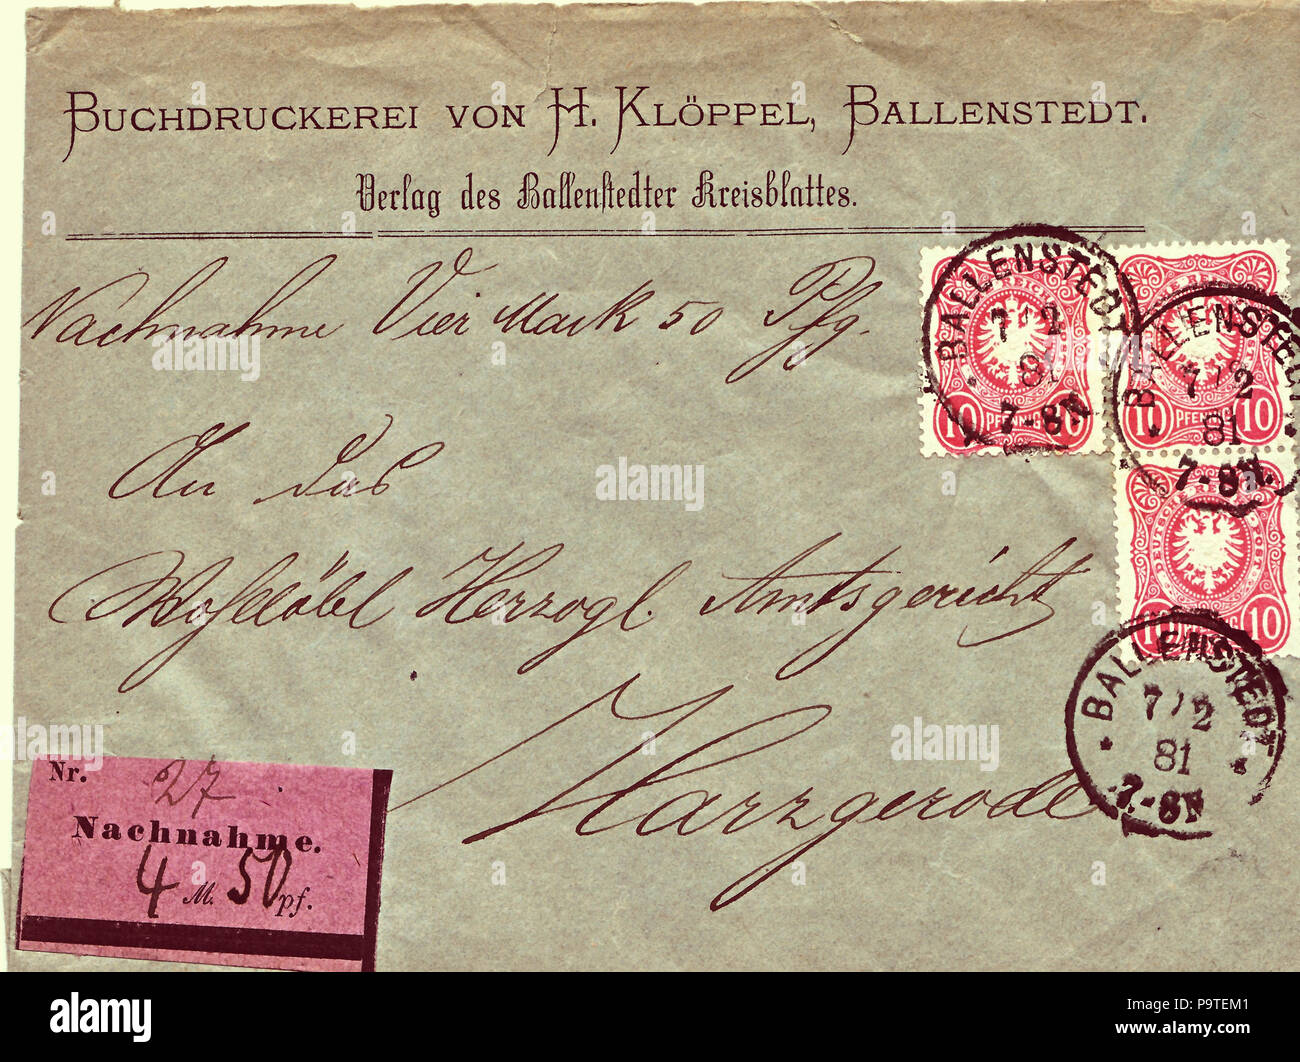 BUCHDRUCKEREI VON H. KLÖPPEL, BALLENSTEDT.
Verlag des Ballenstedter Kreisblattes.
Nachnahme Vier Mark 50 Pfg.
An das
Wohllöbl Herzogl. Amtsgericht
Harzgerode
Nr. 27
Nachnahme.
4 M. 50 pf.
BALLENSTEDT
7/2
81
7-8N
BALLENSTEDT
7/2
81
7-8N.
BALLENSTEDT
7/2
81
7-8N
10 PFENNIG 10
10 PFENNIG 10
DEUTSCHE REICHS-POST
10 PFENNIG 10
alamy stock photo
P9TEM1
www.alamy.com